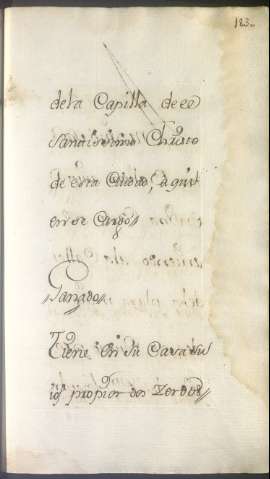 123
dela Capilla de ee
Santissimo Christo
de esta Ciudad, a quí
en se Cargos
Ganados
Tiene en su Casa su
ios propios dos Zerdos